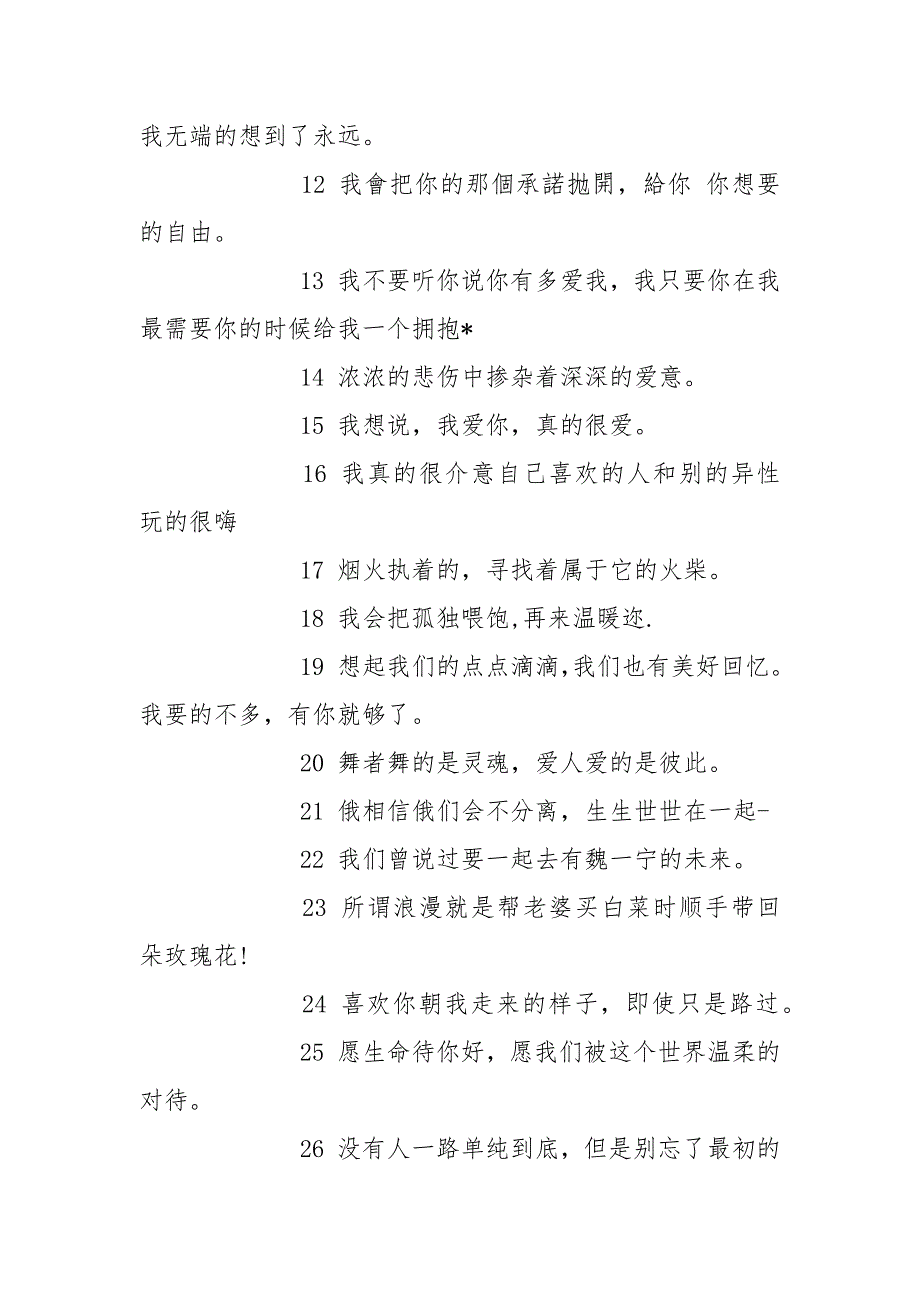 我无端的想到了永远。
12 我會把你的那個承諾抛開，給你 你想要
的自由。
13 我不要听你说你有多爱我，我只要你在我
最需要你的时候给我一个拥抱*
14 浓浓的悲伤中掺杂着深深的爱意。
15 我想说，我爱你，真的很爱。
16 我真的很介意自己喜欢的人和别的异性
玩的很嗨
17 烟火执着的，寻找着属于它的火柴。
18 我会把孤独喂饱,再来温暖迩.
19 想起我们的点点滴滴,我们也有美好回忆。
我要的不多，有你就够了。
20 舞者舞的是灵魂，爱人爱的是彼此。
21 俄相信俄们会不分离，生生世世在一起-
22 我们曾说过要一起去有魏一宁的未来。
23 所谓浪漫就是帮老婆买白菜时顺手带回
朵玫瑰花!
24 喜欢你朝我走来的样子，即使只是路过。
25 愿生命待你好，愿我们被这个世界温柔的
对待。
26 没有人一路单纯到底，但是别忘了最初的